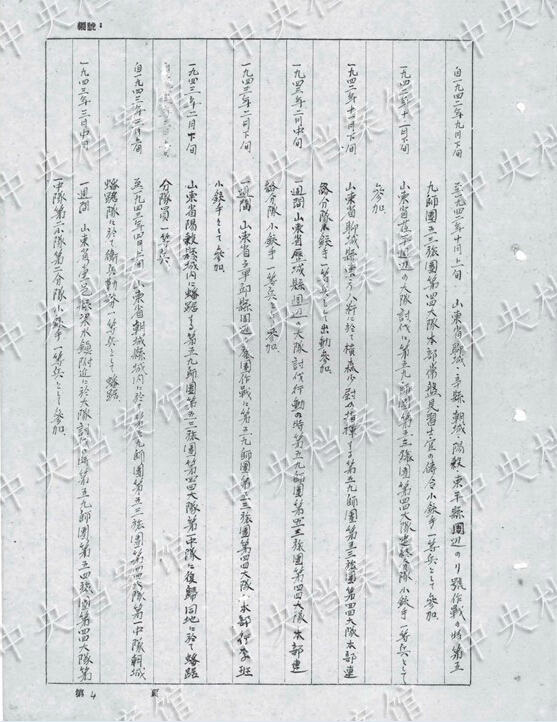 編號：
自一九四二年九月下旬 至一九四二年十月上旬 山東省聊城・莘縣・朝城・陽穀・東平縣周辺のリ號作戦の時第五
九師團五三旅團第四四大隊本部常盤見習士官の傳令小銃手一等兵として參加。
一九四二年十一月下旬 山東省茌平周辺の大隊討伐に第五九師團第五三旅團第四四大隊連絡分隊小銃手一等兵として
參加。
一九四二年十一月下旬 山東省聊城縣 に於て 少尉の指揮する第五九師團第五三旅團第四四大隊本部連
絡分隊小銃手一等兵として出動參加。
一九四三年一月中旬 一週間山東省 城縣周辺の大隊討伐行動の時第五九師團第五三旅團第四四大隊本部連
絡分隊小銃手一等兵として參加。
一九四三年二月下旬 一週間 山東省 縣周辺 作戦に第五九師團第五三旅團第四四大隊本部 班
小銃手として參加。
一九四三年二月下旬 山東省陽穀縣城内に蟠踞する第五九師團第五三旅團第四四大隊第一中隊に復歸同地に於て蟠踞
分隊員一等兵
自一九四三年三月 旬 至一九四三年四月上旬 山東省朝城縣城内に於て第五九師團第五三旅團第四四大隊第一中隊朝城
蟠踞隊に於て衛兵勤務一等兵として蟠踞
一九四三年三月中旬 一週間 山東省 縣 鎮附近に於大隊討伐の時第五九師團第五四旅團第四四大隊第
一中隊第二小隊第二分隊小銃手一等兵として參加。
第 4 頁
中央档案馆